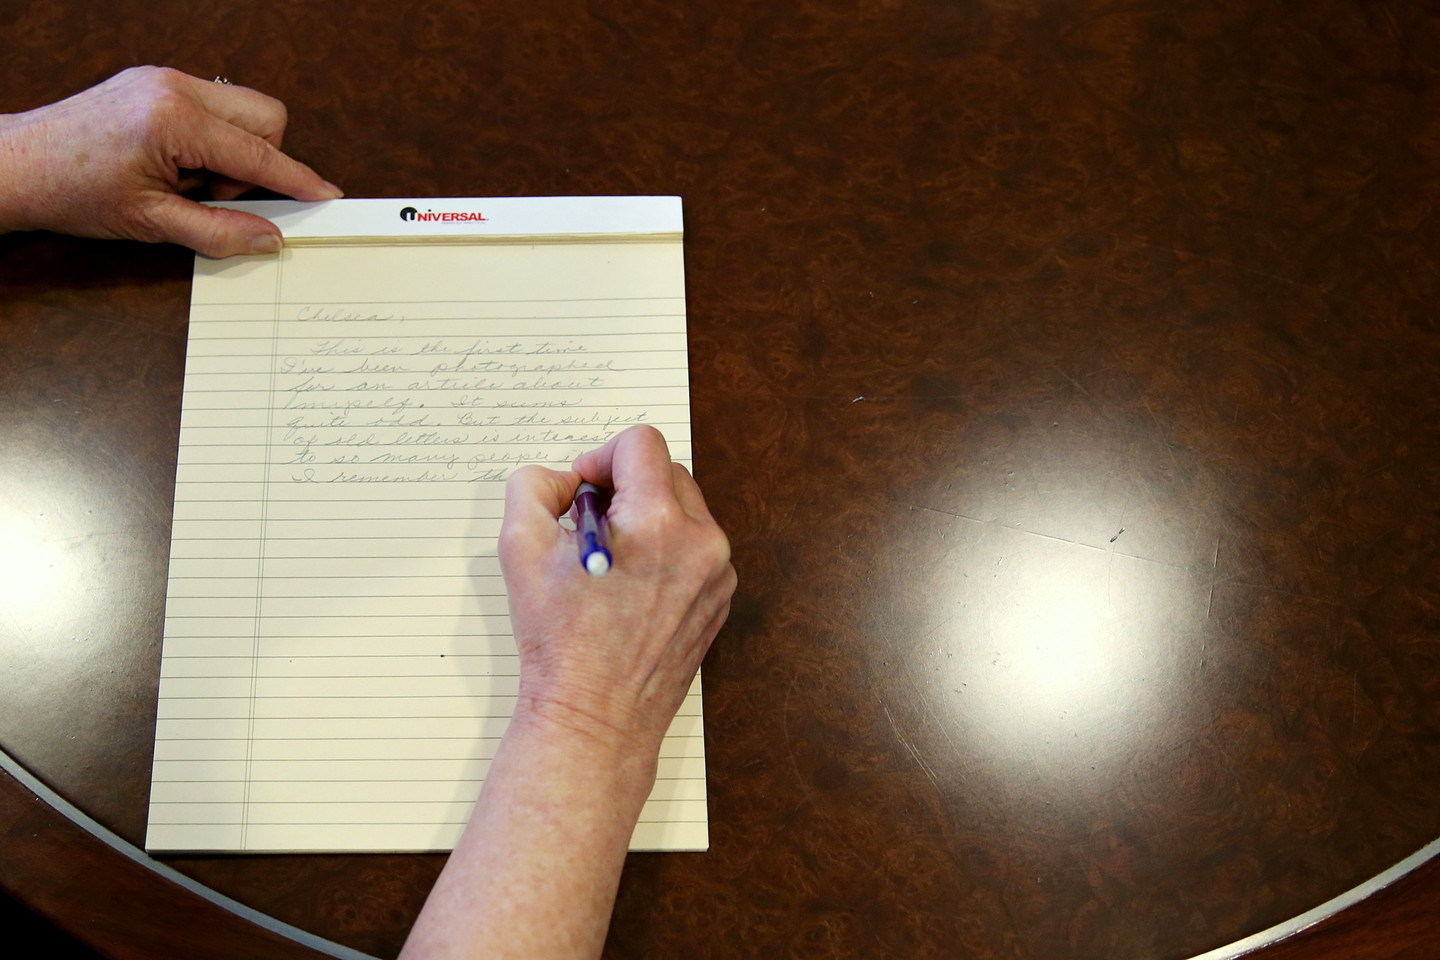 UNIVERSAL
Chelsea,
This is the first time
I've been photographed
for an article about
myself. It seems
quite odd. But the subject
of old letters is interest
to so many people
I remember th